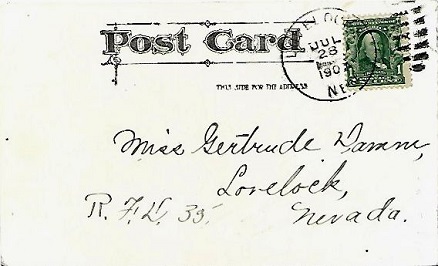 Post Card
THIS SIDE FOR THE ADDRESS
JUL
28
190
NE
1
Miss Gertrude Damm,
Lovelock,
R. F. D. 35.
Nevada.